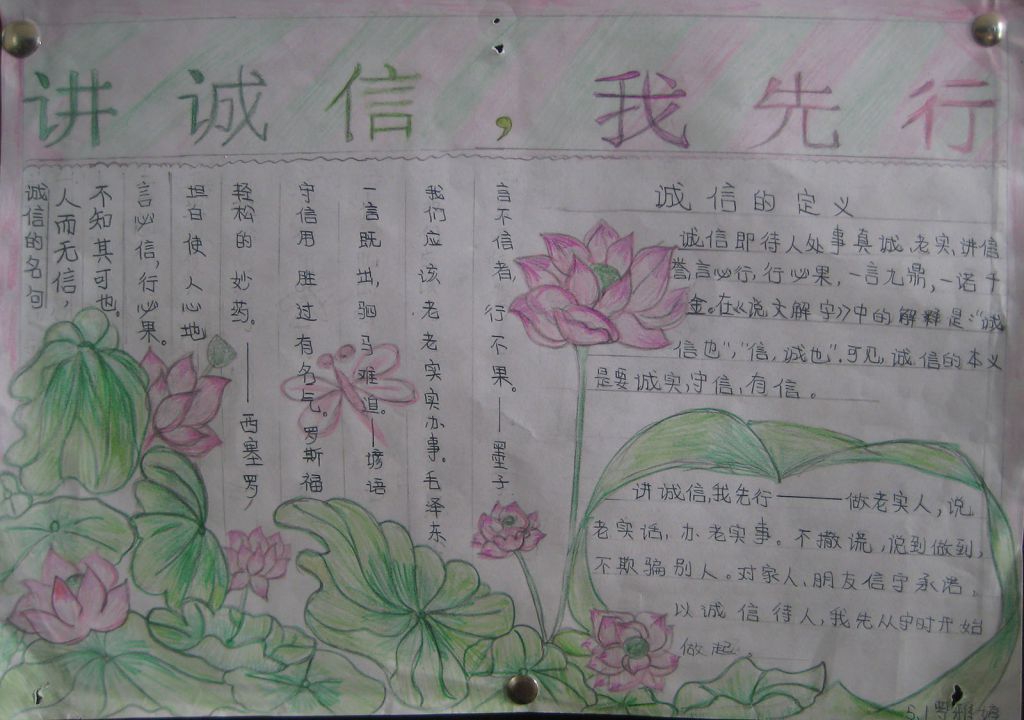 讲诚信，我先行
诚信的名句
人而无信，
不知其可也。
言必信，行必果。
坦白使人心地
轻松的妙药。——西塞罗
守信用胜过有名气。罗斯福
一言既出，驷马难追。——谚语
我们应该老老实实办事。毛泽东
言不信者，行不果。——墨子
诚信的定义
诚信即待人处事真诚、老实、讲信
誉，言必行，行必果，一言九鼎，一诺千
金。在《说文解字》中的解释是：“诚
信也”，“信，诚也”。可见，诚信的本义
是要诚实，守信，有信。
讲诚信，我先行——做老实人，说
老实话，办老实事。不撒谎，说到做到，
不欺骗别人。对家人、朋友信守承诺，
以诚信待人，我先从守时开始
做起。
5.1